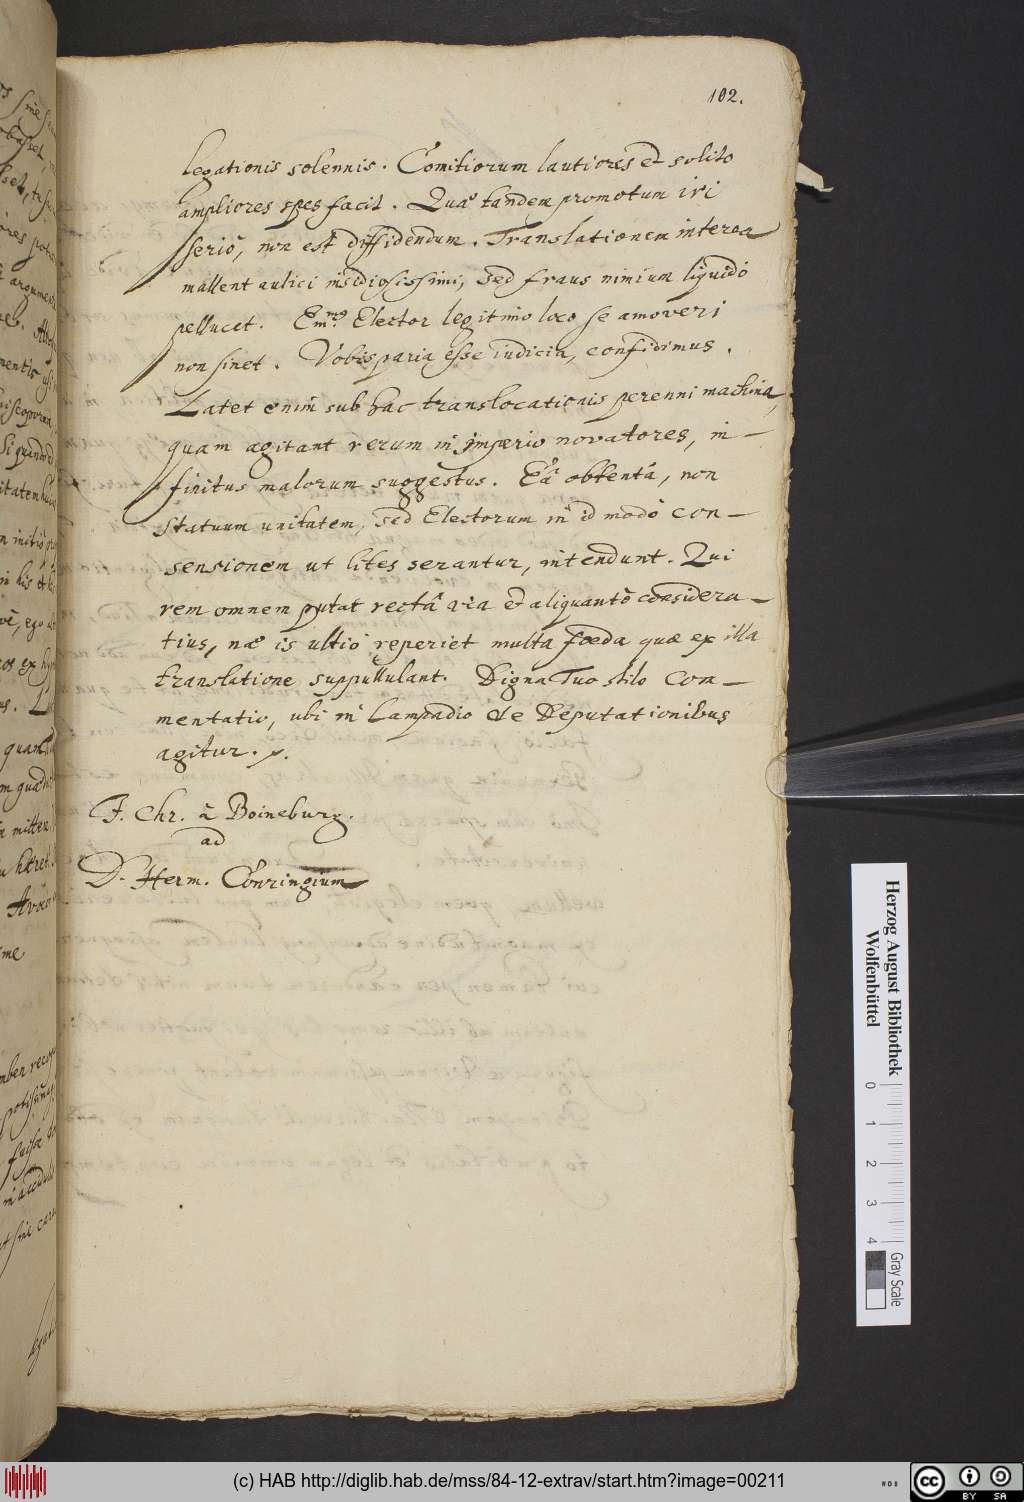 102.
legationis solennis. Comitiorum lautiores et solito
ampliores spes facit. Quae tandem promotum iri
seriò, non est diffidendum. Translationem interea
mallent aulici insidiosissimi, sed fraus nimium liquidò
pellucet. Em.mus Elector legitimo loco se amoveri
non sinet. Vobis paria esse iudicia, confidimus.
Latet enim sub hac translocationis perenni machina,
quam agitant rerum in imperio novatores, in-
finitus malorum suggestus. Eâ obtentâ, non
Statuum unitatem, sed Electorum in id modò con-
sensionem ut lites serantur, intendunt. Qui
rem omnem putat rectâ via et aliquantò considera-
tius, nae is ultió reperiet multa foeda quae ex illa
translatione suppullulant. Digna Tuo stilo Com-
mentatio, ubi in Lampadio de Deputationibus
agitur. p.
J. Chr. à Boineburg.
ad
D. Herm. Conringium
Herzog August Bibliothek
Wolfenbüttel
0 1 2 3 4
Gray Scale
(c) HAB http://diglib.hab.de/mss/84-12-extrav/start.htm?image=00211
cc BY SA